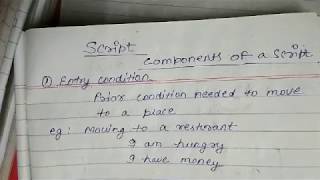 Script
Components of a Script
① Entry condition
Prior condition needed to move
to a place
eg: Moving to a restnrant
I am hungry
I have money